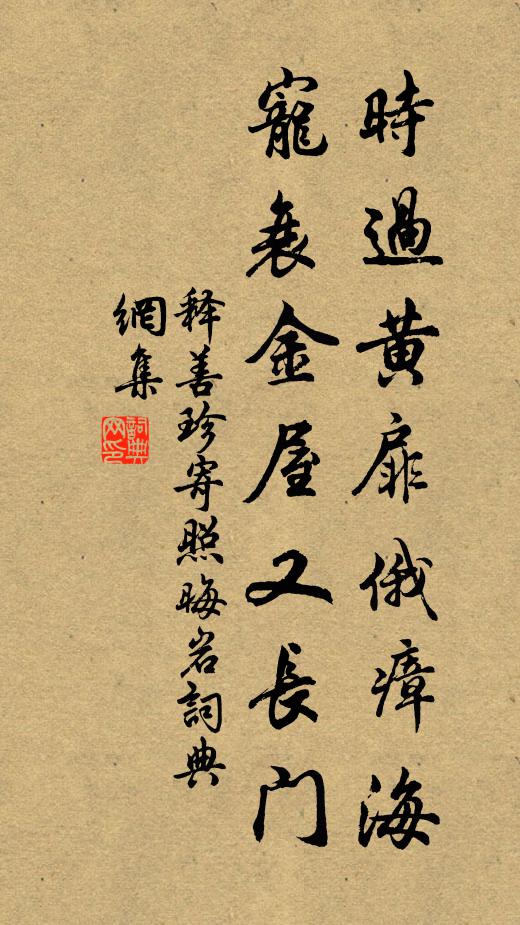 時過黄扉俄瘴海
寵衰金屋又長門
释善珍寄照晦岩詞典
網集
詞典
网印